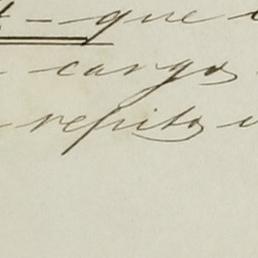 - que
cargos
repito